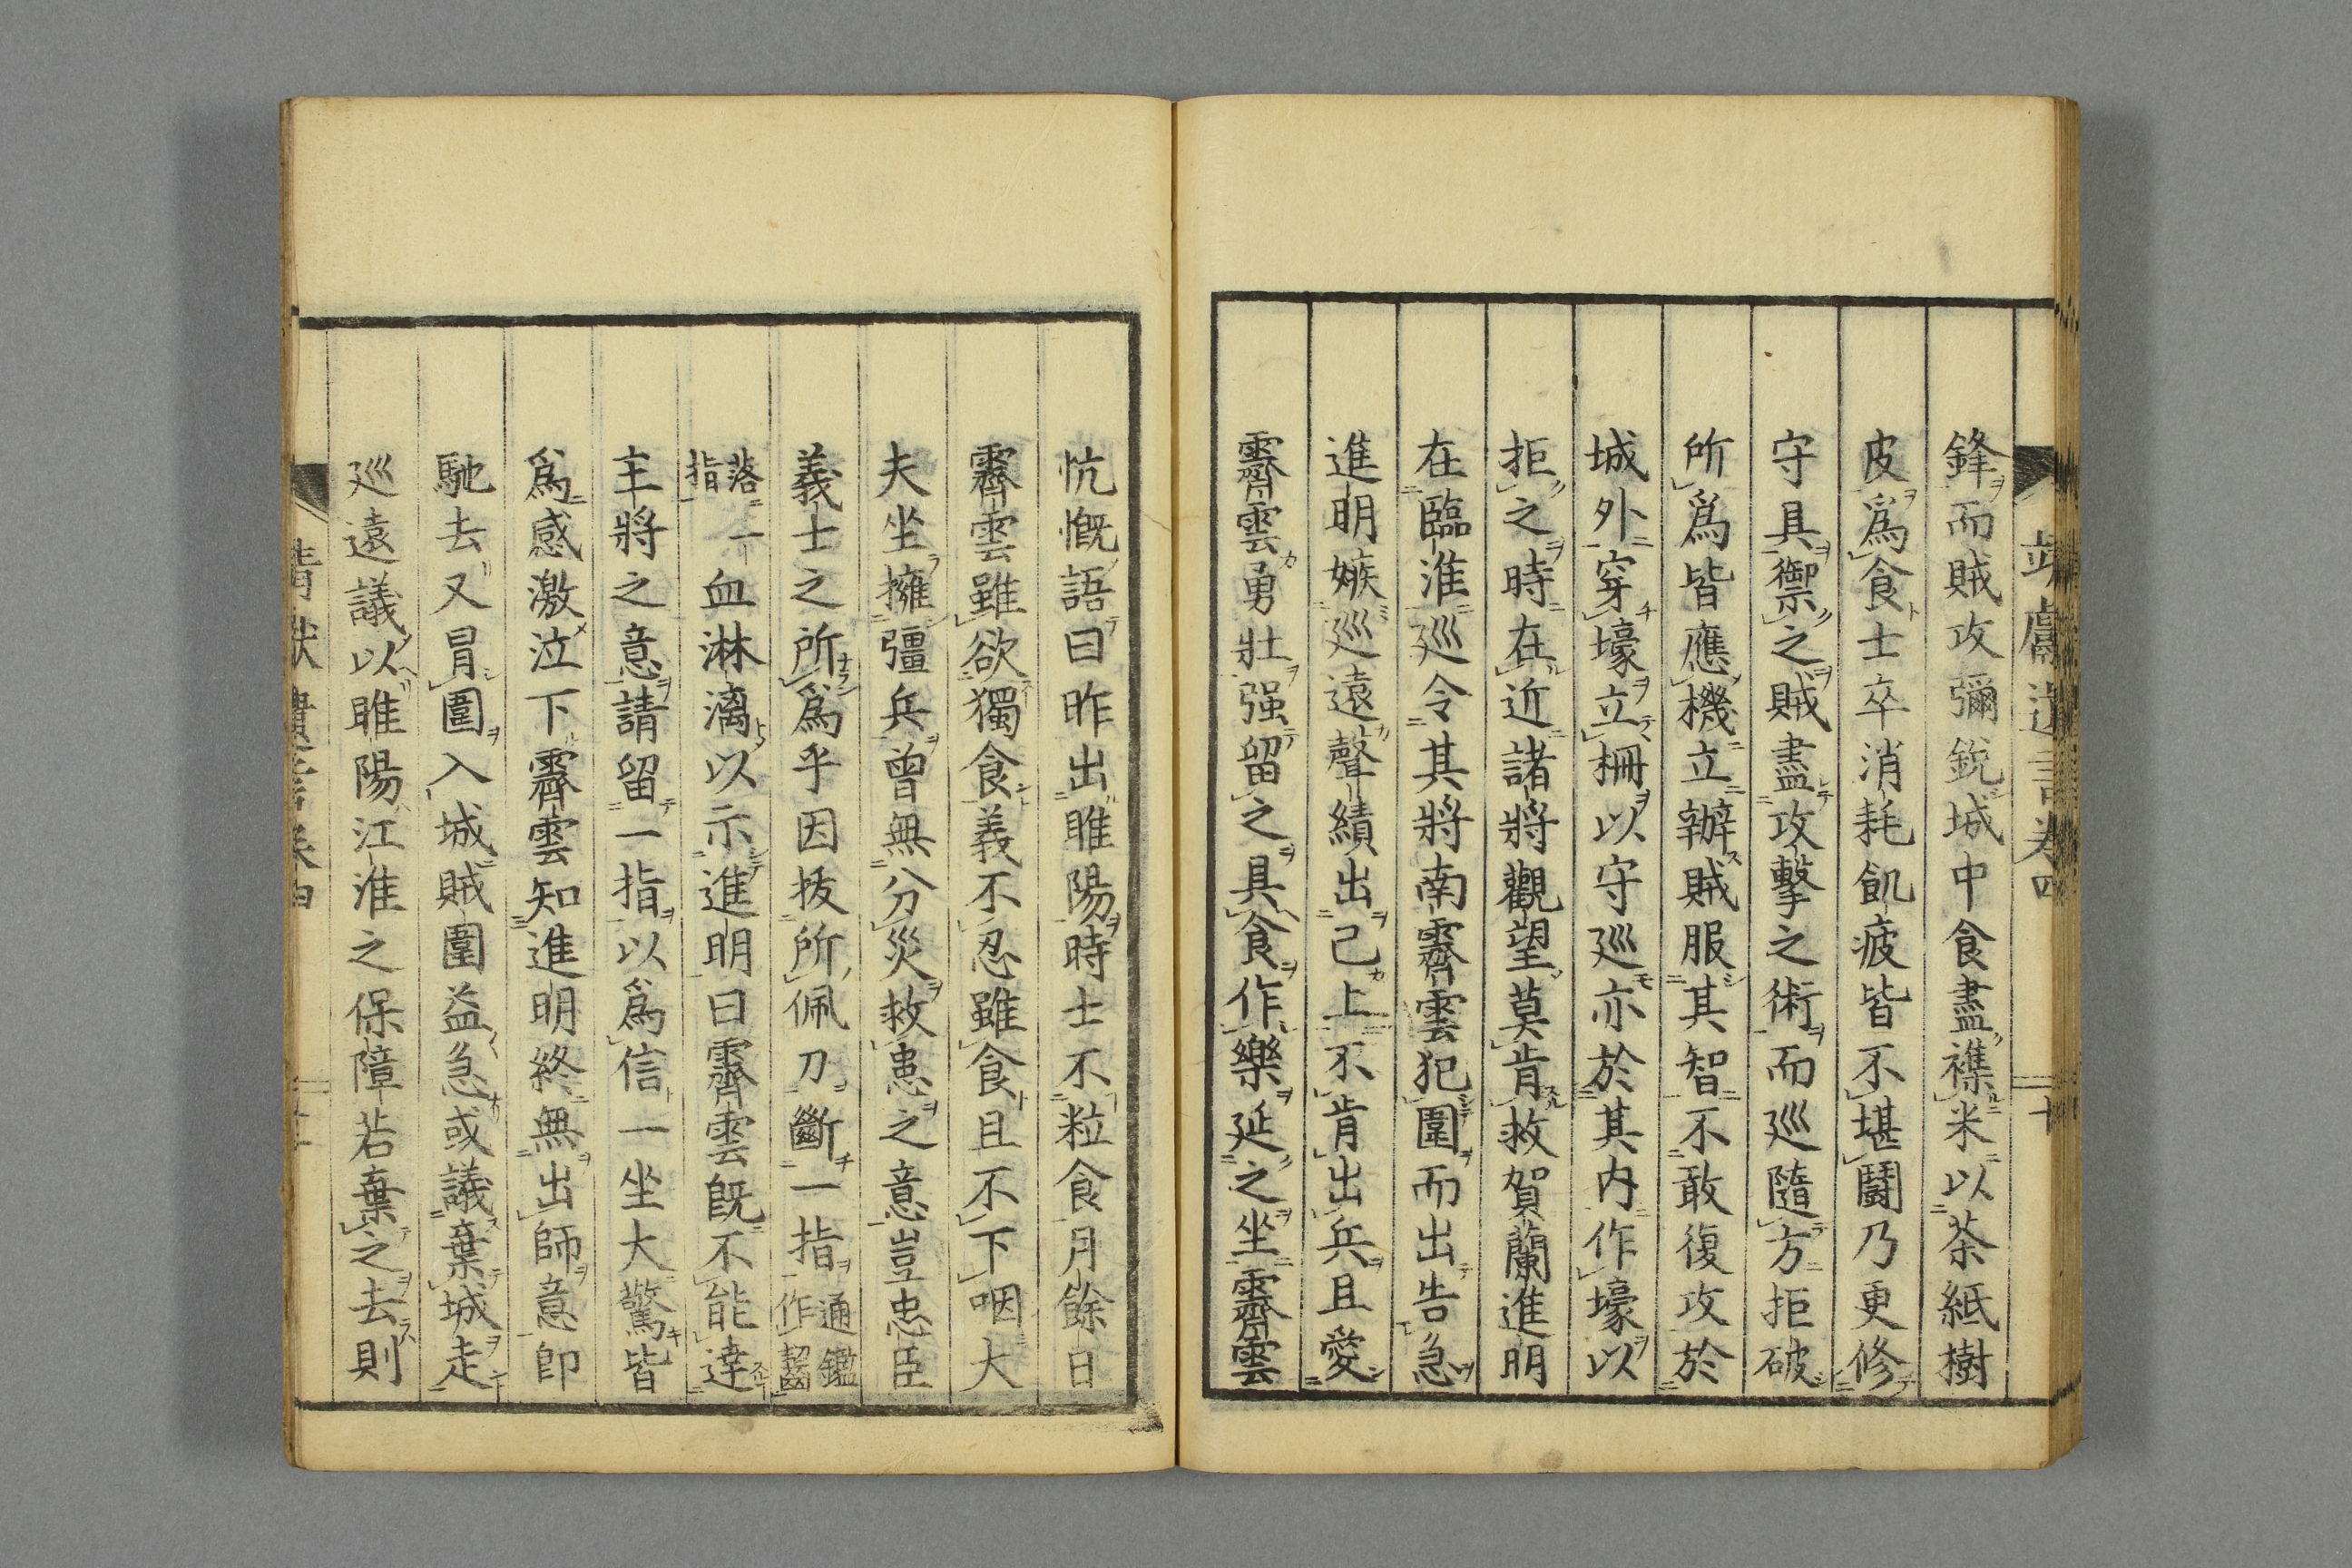 靖獻遺言卷四
十
鋒而賊攻彌銳城中食盡襍米以茶紙樹
皮爲食士卒消耗飢疲皆不堪鬪乃更修
守具禦之賊盡攻擊之術而巡隨方拒破
所爲皆應機立辦賊服其智不敢復攻於
城外穿壕立柵以守巡亦於其内作壕以
拒之時在近諸將觀望莫肯救賀蘭進明
在臨淮巡令其將南霽雲犯圍而出告急
進明嫉巡遠聲績出己上不肯出兵且愛
霽雲勇壯强留之具食作樂延之坐霽雲
忼慨語曰昨出睢陽時士不粒食月餘日
霽雲雖欲獨食義不忍雖食且不下咽大
夫坐擁彊兵曾無分災救患之意豈忠臣
義士之所爲乎因拔所佩刀斷一指通鑑作齧
落一指血淋漓以示進明曰霽雲既不能達
主將之意請留一指以爲信一坐大驚皆
爲感激泣下霽雲知進明終無出師意卽
馳去又冒圍入城賊圍益急或議棄城走
巡遠議以睢陽江淮之保障若棄之去則
靖獻遺言卷四